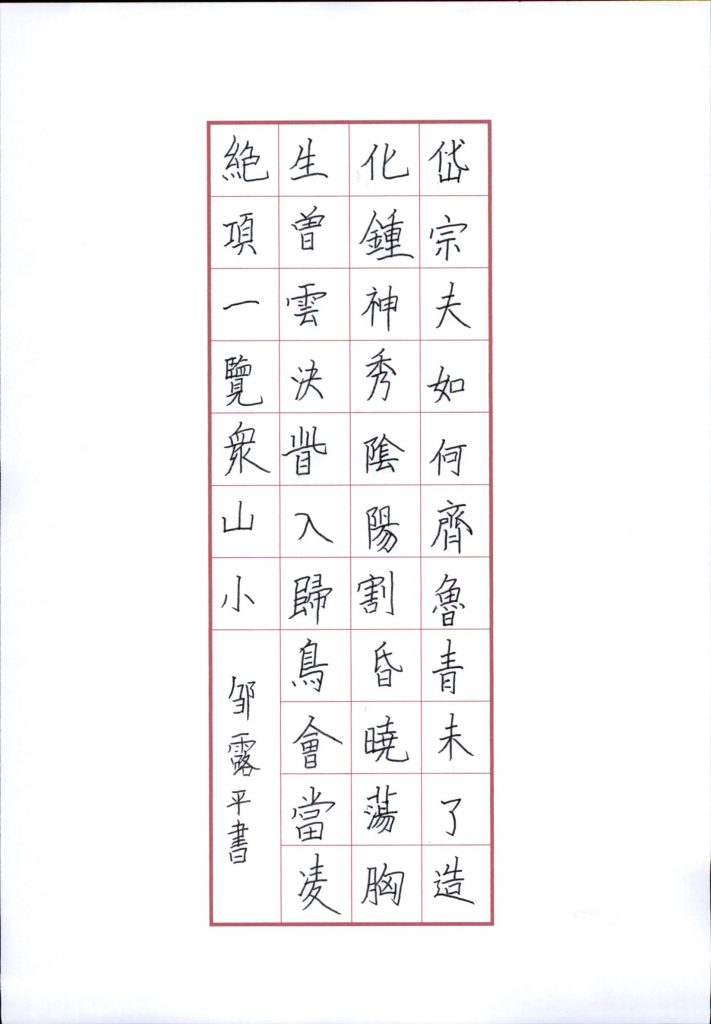 岱宗夫如何齊魯青未了造
化鍾神秀陰陽割昏曉蕩胸
生曾雲決眥入歸鳥會當凌
絕項一覽衆山小
邹露平書